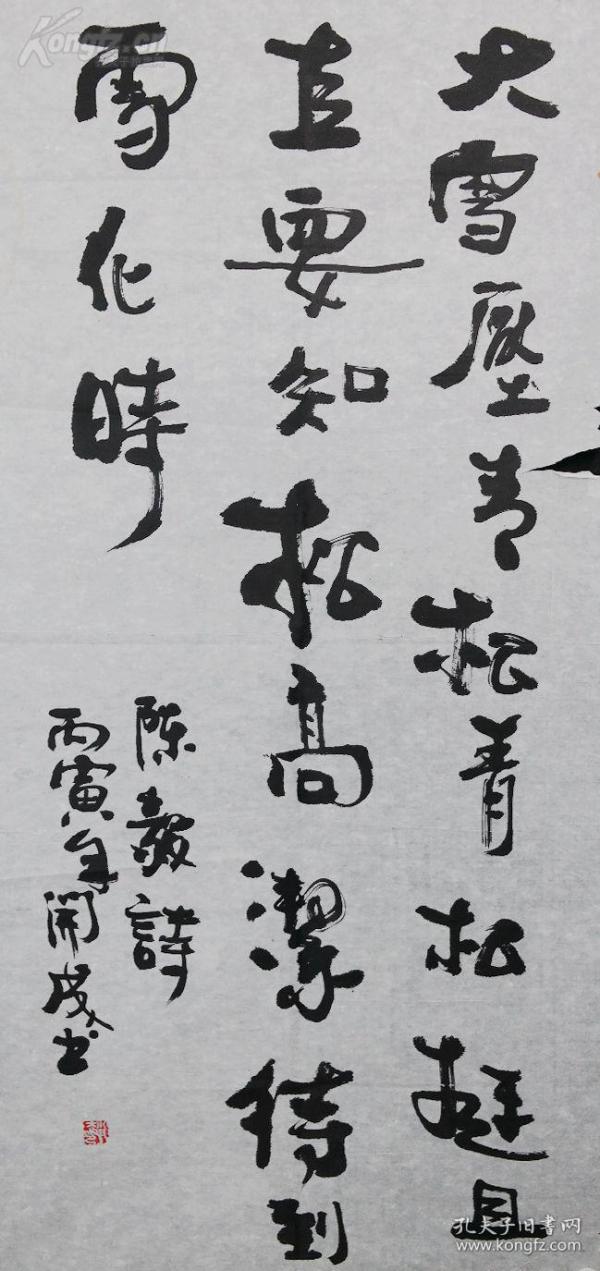 大雪壓青松青松挺且
直要知松高潔待到
雪化時
陳毅詩
丙寅年開成书
Kongfz.cn
孔夫子旧书网
www.kongfz.com